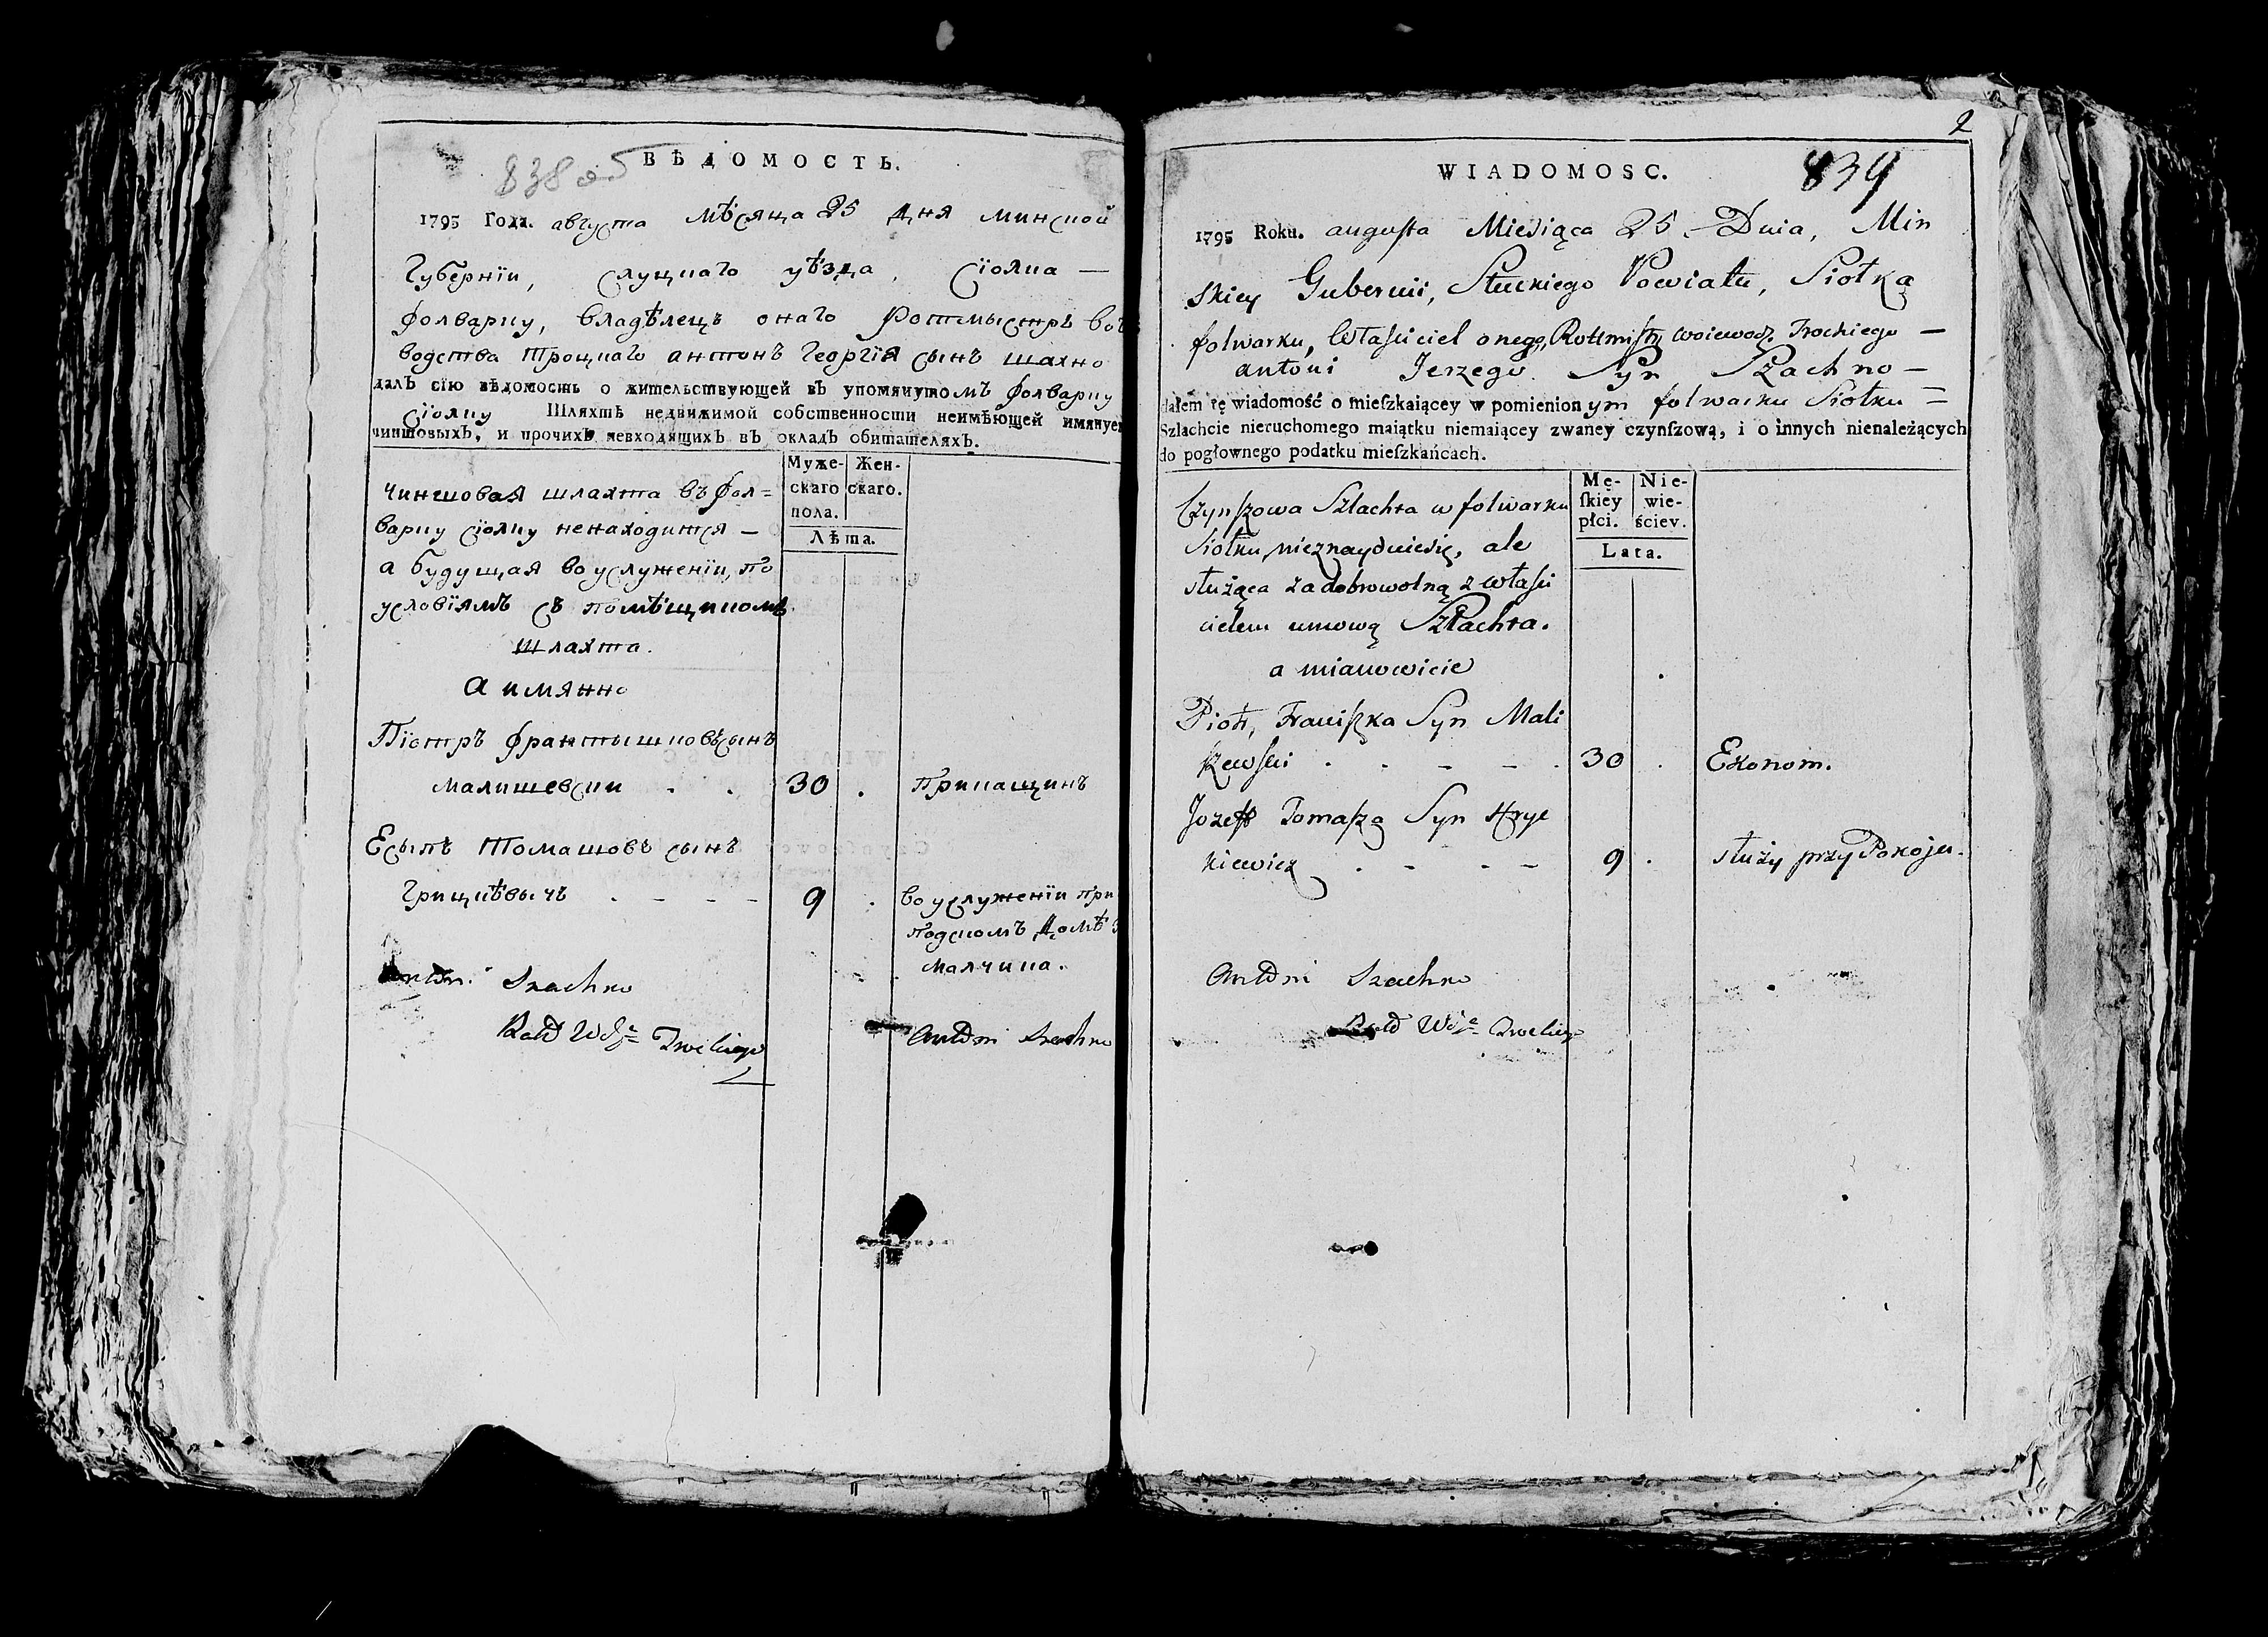 838 об
ВѢДОМОСТЬ.
1795 Года. августа мѣсяца 25 дня минской
Губернїи, слуцкаго уѣзда, Сїолка —
фолварку, владѣлецъ онаго Ротмыстръ Вое
водства Троцкаго антонъ Георгїя сынъ шахно
далъ сїю вѣдомость о жительствующей въ упомянутомъ фолварку
Сїолку Шляхтѣ недвижимой собственности неимѣющей имянуе
чиншовыхъ, и прочихъ невходящихъ въ окладъ обитателяхъ.
Муже- Жен-
скаго скаго.
пола.
Лѣта.
чиншовая шляхта въ фол=
варку сїолку ненаходится —
а будущая во услуженїи, по
условїямъ съ помѣщикомъ
шляхта.
а имянно
Піотръ франтышковъ сынъ
малишевски . . 30 . Прикащикъ
Есыпъ Томашовъ сынъ
Грицкѣвычъ . - - - 9 . во услуженїи при
подскомъ домѣ
малчика.
Antoni Szachno
Rotm Wdz^a Trockiego
Antoni Szachno
2
839
WIADOMOSC.
1795 Roku. augusta Miesiąca 25 Dnia, Min
skiey Gubernii, Słuckiego Powiatu, Siołka
folwarku, Właściciel onego, Rotmistrz woiewodz. Trockiego —
antoni Jerzego Syn Szachno —
dałem tę wiadomość o mieſzkaiącey w pomienionym folwarku Siołku =
Szlachcie nieruchomego maiątku niemaiącey zwaney czynſzową, i o innych nienależących
do pogłownego podatku mieſzkańcach.
Mę- Nie-
ſkiey wie-
płci. ściey.
Lata.
Czynſzowa Szlachta w folwarku
Siołku nieznayduiesię, ale
służąca za dobrowolną z właści
cielem umową Szlachta.
a mianowicie
Piotr, Franiſzka Syn Mali
ſzewſki . - - - . 30 . Ekonom.
Jozeff Tomaſza Syn Hryc
kiewicz . - - - 9 . służy przy Pokoju.
Antoni Szachno
Rotm Wdz^a Trockiego